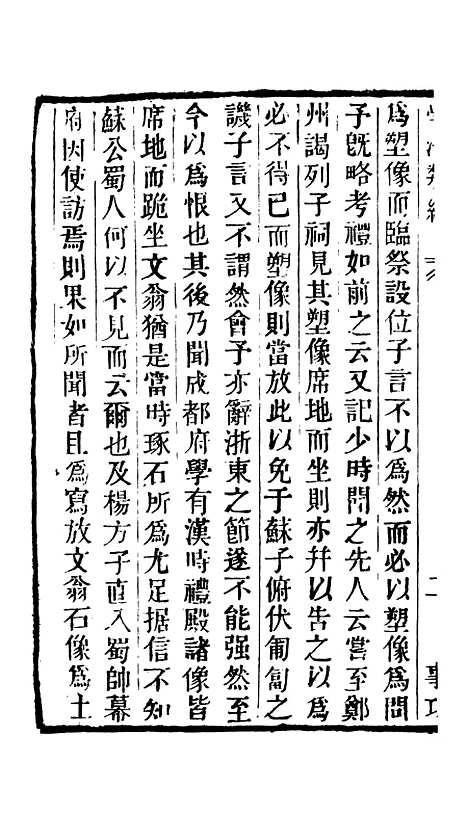 學海類編
二
事功
爲塑像而臨祭設位子言不以爲然而必以塑像爲問
子旣略考禮如前之云又記少時聞之先人云嘗至鄭
州謁列子祠見其塑像席地而坐則亦幷以告之以爲
必不得已而塑像則當放此以免于蘇子俯伏匍匐之
譏子言又不謂然會予亦辭浙東之節遂不能强然至
今以爲恨也其後乃聞成都府學有漢時禮殿諸像皆
席地而跪坐文翁猶是當時琢石所爲尤足据信不知
蘇公蜀人何以不見而云爾也及楊方子直入蜀帥幕
府因使訪焉則果如所聞者且爲寫放文翁石像爲土